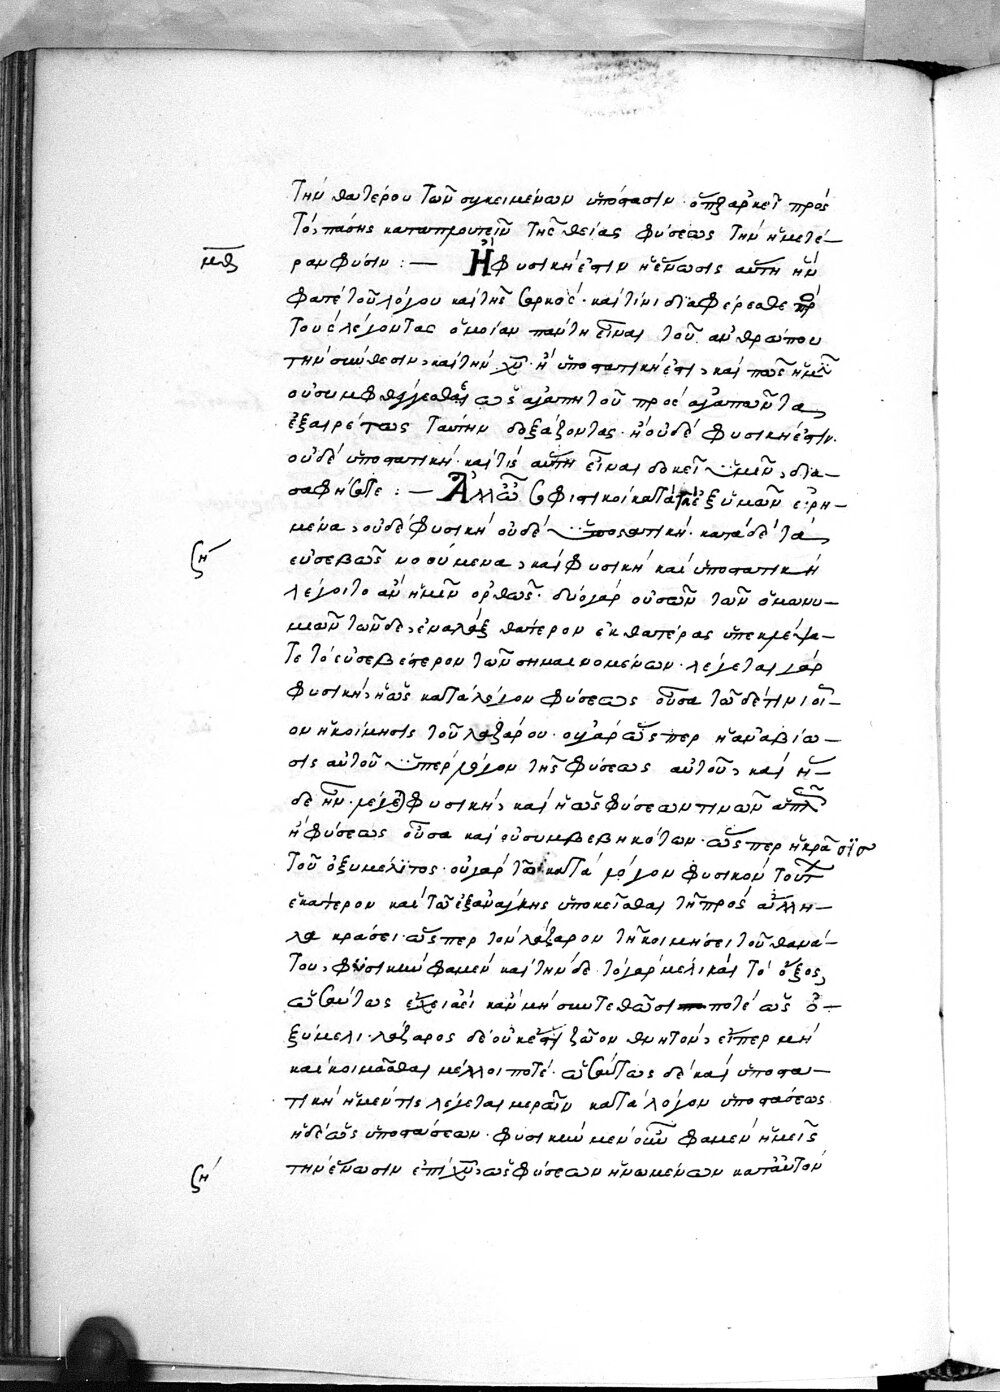 τὴν θατέρου τῶν συγκειμένων ὑπόστασιν· ὅπερ ἀρκεῖ πρὸς
τὸ, πάσης καταπρουτεῖν τῆς θείας φύσεως τὴν ἡμετέ-
μθ ραν φύσιν : — Ἢ φυσική ἐστιν ἡ ἕνωσις αὕτη ἣν
φατὲ τοῦ λόγου καὶ τῆς σαρκός· καὶ τίνι διαφέρεσθε πρὸς
τοὺς λέγοντας ὁμοίαν πάντη εἶναι τοῦ ἀνθρώπου
τὴν σύνθεσιν, καὶ τὴν χυ· ἢ ὑποστατική ἐστι, καὶ πῶς ἡμῖν
οὐ συμφθέγγεσθαι ὡς ἀγαπητοῦ πρὸς ἀγαπῶντα
ἐξαιρέτως ταύτην δοξάζοντας· ἢ οὐδὲ φυσική ἐστιν·
οὐδὲ ὑποστατική· καὶ τίς αὕτη εἶναι δοκεῖ ὑμῖν, δια-
σαφήσατε : — Ἀλλ' ὦ σοφιστικοὶ κατὰ τὰ ἐξ ὑμῶν εἰρη-
μένα, οὐδὲ φυσικὴ οὐδὲ ὑποστατική· κατὰ δὲ τὰ
ζη εὐσεβῶς νοούμενα, καὶ φυσικὴ καὶ ὑποστατικὴ
λέγοιτο ἂν ἡμῖν ὀρθῶς· δύο γὰρ οὐσῶν τῶν ὁμωνυ-
μιῶν τῶνδε, ἐναλλὰξ θάτερον ἐκ θατέρας ὑπεκλέψα-
τε τὸ εὐσεβέστερον τῶν σημαινομένων· λέγεται γὰρ
φυσική, ἢ ὡς κατὰ λόγον φύσεως οὖσα τῶδέ τινι οἷ-
ον ἡ κοίμησις τοῦ λαζάρου· οὐ γὰρ ὥσπερ ἡ ἀναβίω-
σις αὐτοῦ ὑπὲρ λόγον τῆς φύσεως αὐτοῦ, καὶ ἥ-
δε ἦν· λέγεται φυσική, καὶ ἡ ὡς φύσεων τινῶν ἁπλῶς
ἢ φύσεως οὖσα καὶ οὐ συμβεβηκότων· ὥσπερ ἡ κρᾶσις
τοῦ ὀξυμέλιτος· οὐ γὰρ τῶ κατὰ λόγον φυσικὸν τούτων
ἑκάτερον καὶ τῶ ἐξανάγκης ὑποκεῖσθαι τῇ πρὸς ἄλλη-
λα κράσει· ὥσπερ τὸν λάζαρον τῇ κοιμήσει τοῦ θανά-
του, φυσικὴν φαμὲν καὶ τήνδε· τὸ γὰρ μέλι καὶ τὸ ὄξος,
ὡσαύτως ἔχει ἀεὶ κἂν μὴ συντεθῶσι ποτὲ ὡς ὀ-
ξύμελι· λάζαρος δὲ οὐκέτι ζῶον θνητόν, εἴπερ μὴ
καὶ κοιμᾶσθαι μέλλοι ποτέ· ὡσαύτως δὲ καὶ ὑποστα-
τικὴ ἡ μέν τις λέγεται μερῶν κατὰ λόγον ὑποστάσεως
ἡ δὲ ὡς ὑποστάσεων· φυσικὴν μὲν οὖν φαμὲν ἡμεῖς
ζη τὴν ἕνωσιν ἐπὶ χυ, ὡς φύσεων ἡνωμένων κατ' αὐτὸν